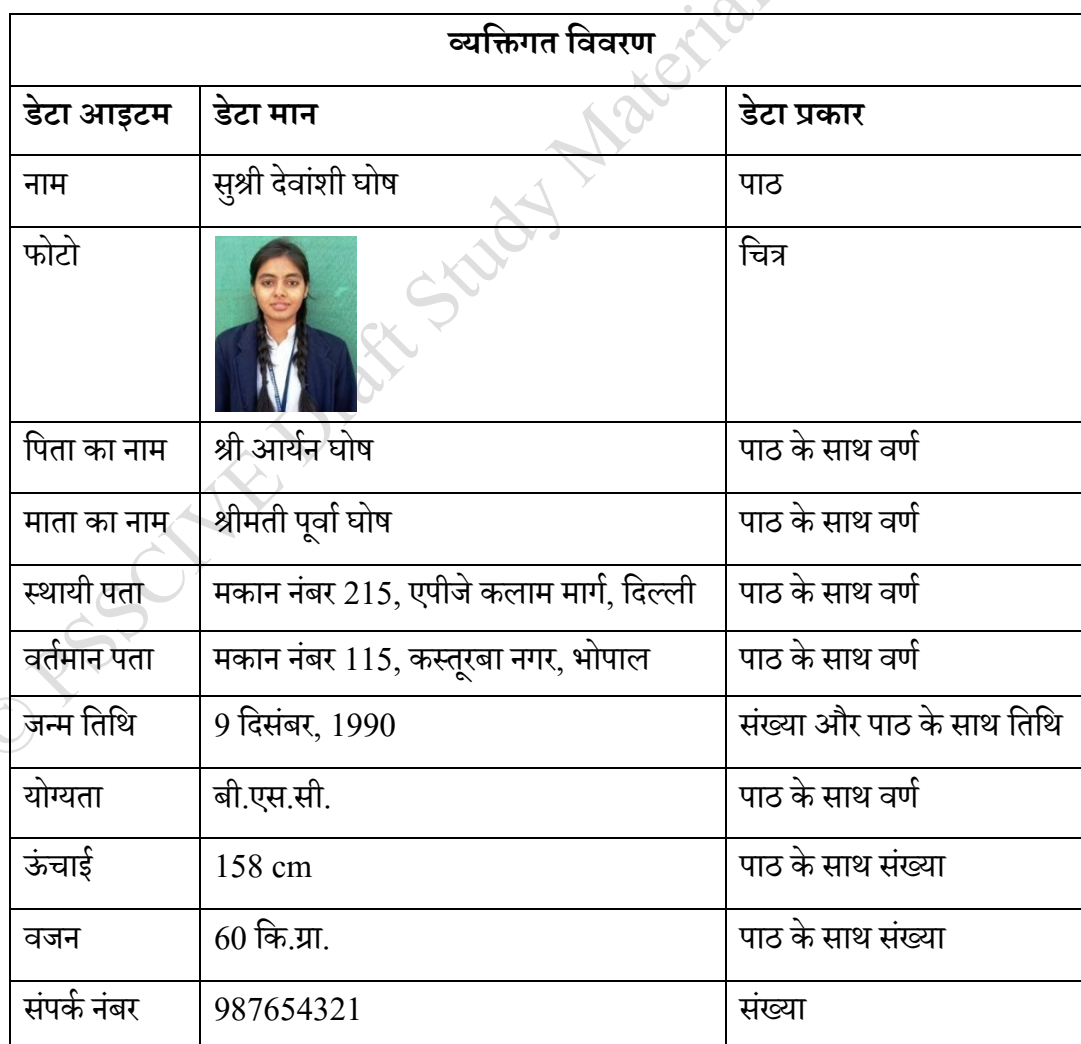 व्यक्तिगत विवरण
डेटा आइटम डेटा मान डेटा प्रकार
नाम सुश्री देवांशी घोष पाठ
फोटो चित्र
पिता का नाम श्री आर्यन घोष पाठ के साथ वर्ण
माता का नाम श्रीमती पूर्वा घोष पाठ के साथ वर्ण
स्थायी पता मकान नंबर 215, एपीजे कलाम मार्ग, दिल्ली पाठ के साथ वर्ण
वर्तमान पता मकान नंबर 115, कस्तूरबा नगर, भोपाल पाठ के साथ वर्ण
जन्म तिथि 9 दिसंबर, 1990 संख्या और पाठ के साथ तिथि
योग्यता बी.एस.सी. पाठ के साथ वर्ण
ऊंचाई 158 cm पाठ के साथ संख्या
वजन 60 कि.ग्रा. पाठ के साथ संख्या
संपर्क नंबर 987654321 संख्या
© PSSCIVE Draft Study Material